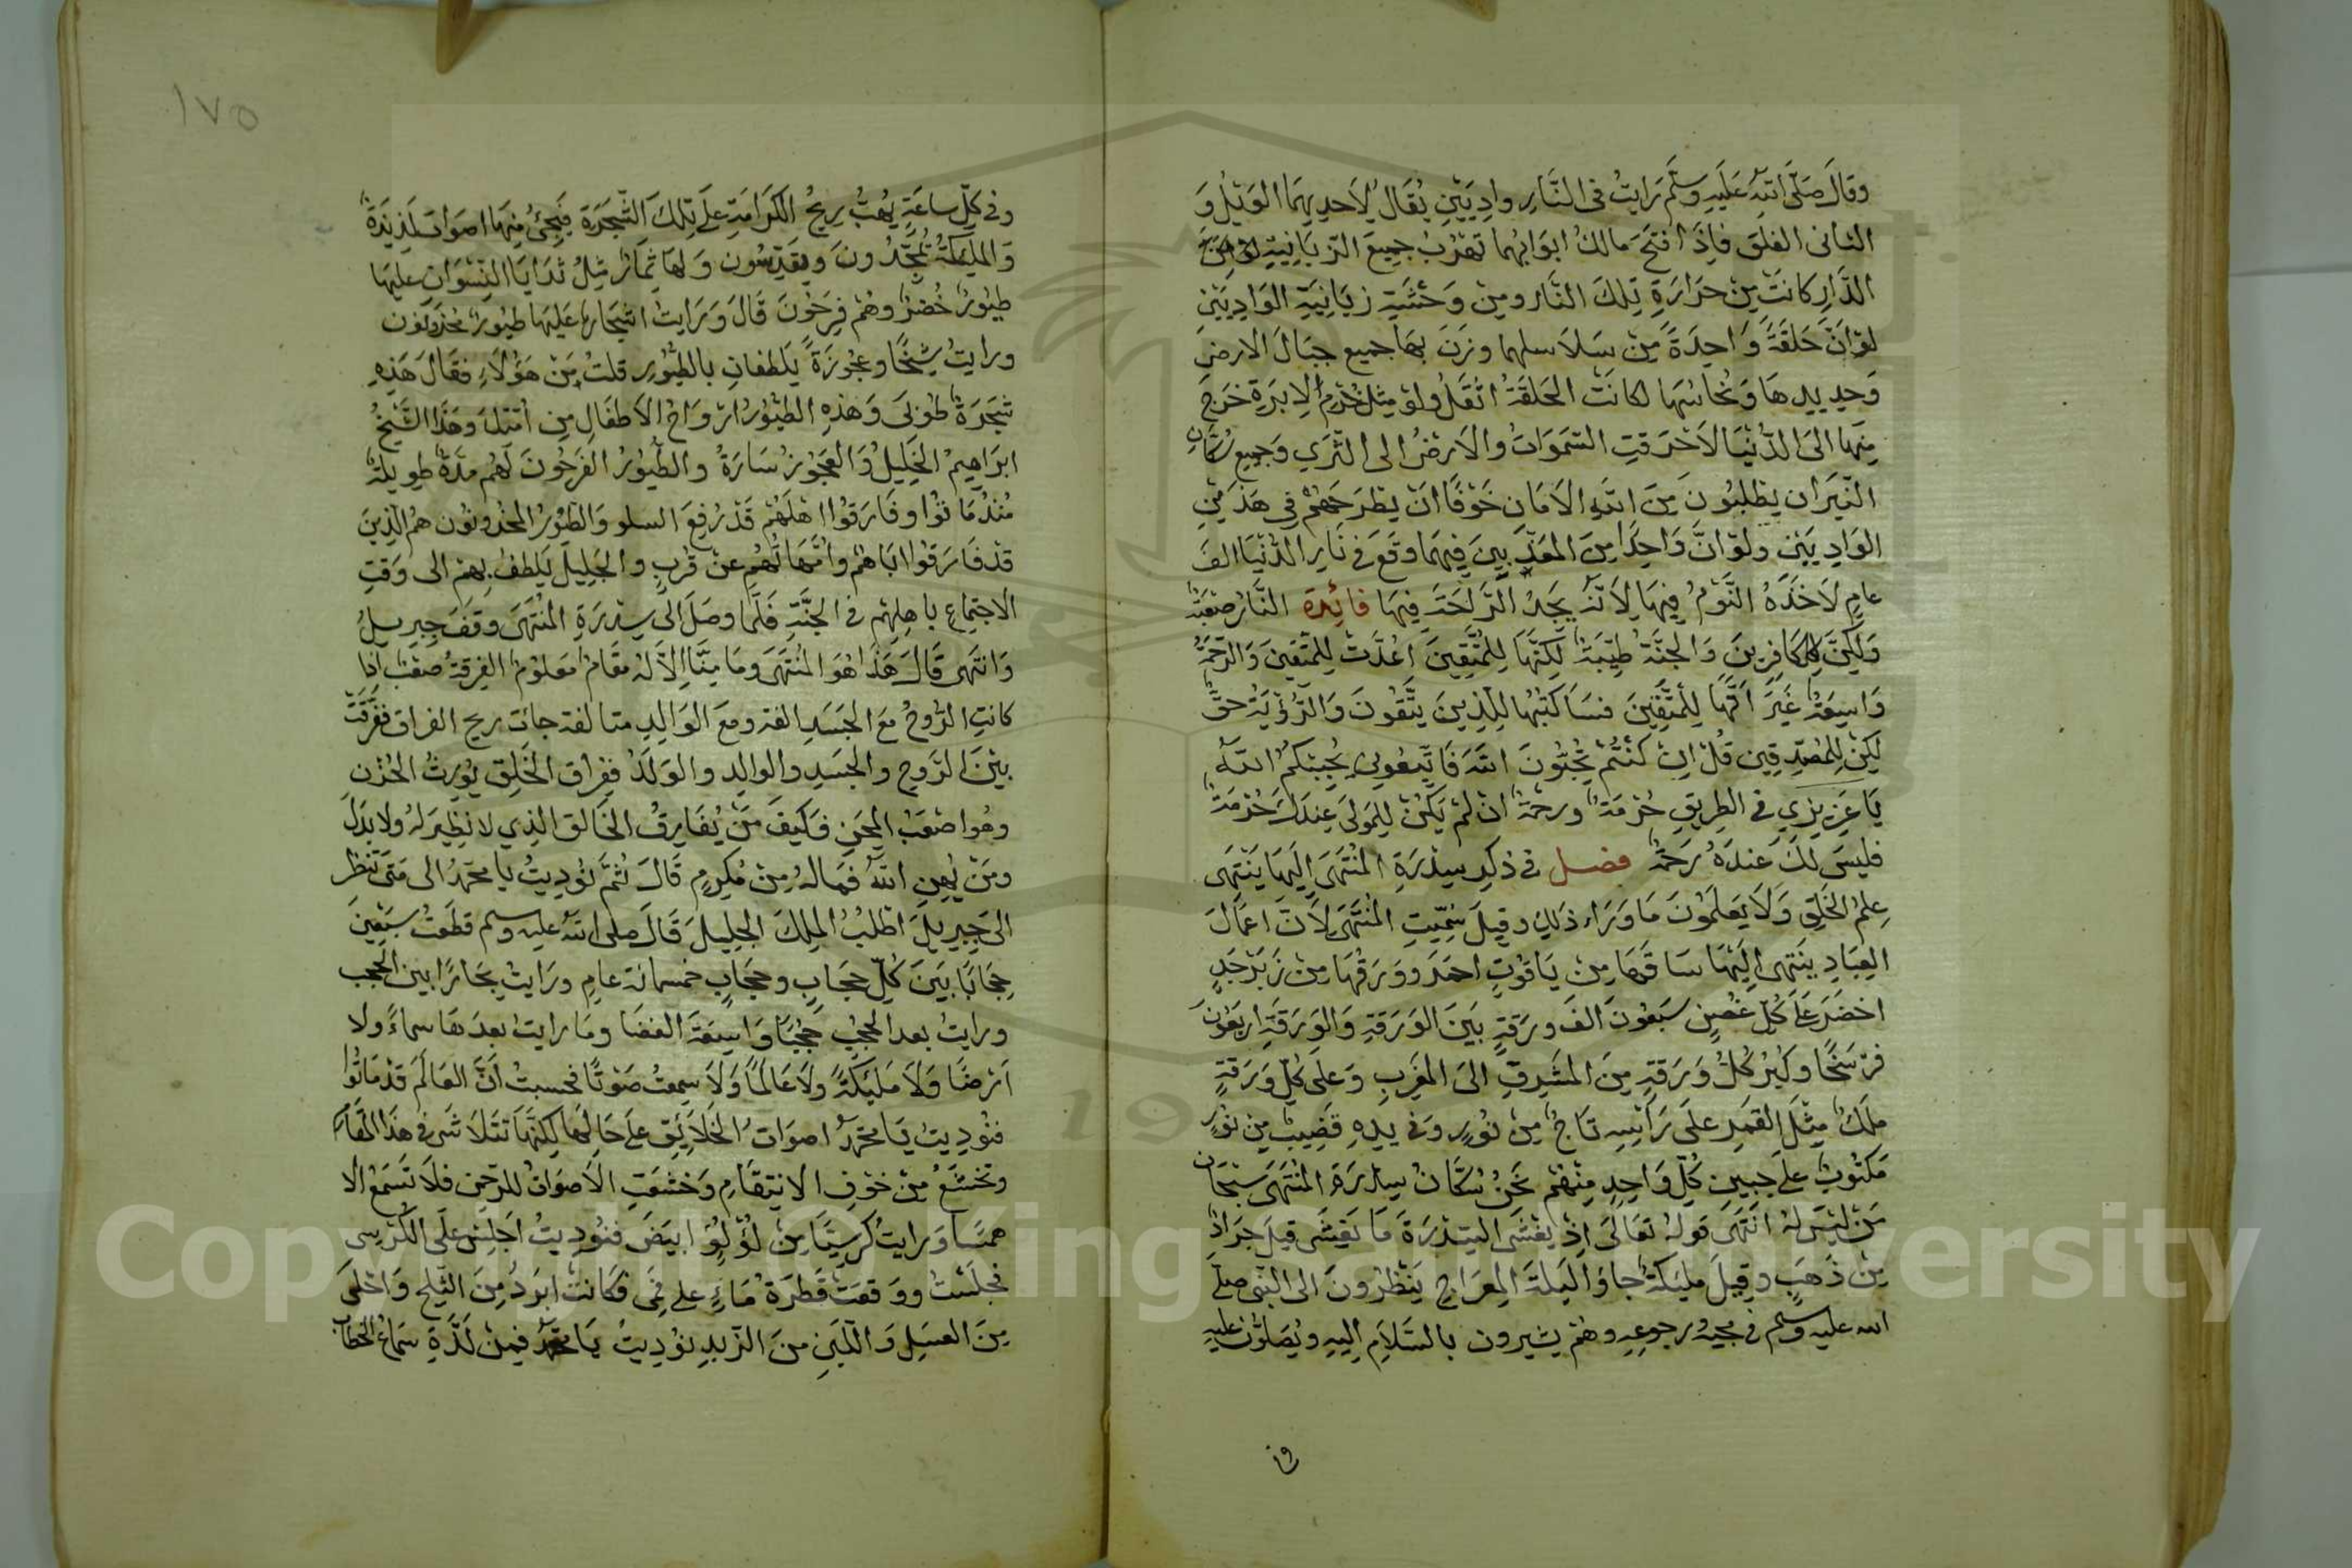 وقال صَلّى اللّه عَلَيهِ وسَلّم رَايتُ فى النَّار وادِيَيْنِ يُقَالُ لاَحدِيهمَا الوَيْلُ وَ
الثانى الفلق فاِذَا فتحَ مالكُ ابوَابهما تهرُبُ جميعَ الزّبَانِيَةِ
النَّارِ كانَتْ مِنْ حَرَارَةِ تِلكَ النَّار ومِنْ وَحْشَةِ زبَانِيَةِ الوَادِيَيْنِ
لوْ اَنّ حَلقَةً وَاحِدَةً مِنْ سَلاَسلهما وزنَ بهَا جميع جبَالَ الارضِ
وَحديدِهَا وَنُحَاسُهَا لكانَتْ الحَلقَةُ اثْقَلُ ولوْ مِثلُ خُرْمِ الاِبَرَةِ خَرَجَ
مِنهَا الىَ الدّنْيَا لاَحْرَقتِ السَّمَوَاتِ والاَرضُ الى الثّرَي وَجميع سُكّان
النّيرَان يطلبُونَ مِنَ اللّهِ الاَمَان خَوْفًا انْ يطْرَحَهُمْ فِى هَذَيْنِ
الوَادِيَيْنِ ولوْ انَّ وَاحِدًا مِنَ المعَذّبِينَ فِيهمَا وقعَ فى نَارِ الدّنْيَا الفَ
عامٍ لاَخَذَهُ النَّوْمُ فِيهَا لاَنّهُ يَجدُ الرّاحَةَ فِيهَا فائِدَة النَّارُ صَعْبَةٌ
وَلكِنْ لِلكَافِرِينَ وَالجنَّةُ طيّبَةٌ لكِنَّهَا لِلمُتَّقِينَ اعُدَّتْ لِلمتّقينَ وَالرّحْمَةُ
وَاسِعَةٌ غَيرَ اَنَّهَا لِلمُتّقِينَ فسَاَكتبُهَا لِلّذِينَ يَتَّقُونَ وَالرُّؤْيَةُ حقٌّ
لكِنْ لِلمُصَدِّقِين قُلْ اِنْ كنْتُمْ تُحِبُّونَ اللّهَ فَاتّبعُونِي يُحْبِبْكُمُ اللّهُ
يَا عَزِيزِي فى الطرِيقِ حُرْمَةٌ ورحْمَةٌ انْ لمْ يَكنْ لِلمَوْلىَ عِندَكَ حُرْمَةٌ
فليسَ لكَ عندَهُ رَحَمْةٌ فصل فى ذكرِ سِدْرَةِ المُنْتَهَى اِلَيهَا يَنْتَهَى
عِلمُ الخَلقِ وَلاَ يَعلَمُوْنَ مَا وَرَاء ذلِكَ وقِيلَ سُمِّيَتِ المنْتَهَى لاَنّ اعمَالَ
العِبَادِ ينَتهى اِلَيْهَا سَاقَهَا مِنْ يَاقُوتٍ احمَرَ ووَرَقُهَا مِنْ زَبَرْجَدٍ
اخضَرَ عَلَى كُلّ غُصْنٍ سَبعُونَ الفَ ورَقةٍ بَينَ الوَرَقةِ وَالوَرَقَةِ اربَعُونَ
فرْسَخًا وكبُرُ كُلُّ وَرَقَةٍ مِنَ المَشرقِ الىَ المغربِ وَعلَى كلّ وَرَقةٍ
مَلكٌ مِثلَ القمَرِ علَى رَاسِهِ تَاجٌ مِنْ نوُرٍ وَفى يدِهِ قَضيبٌ مِن نُورٍ
مَكتُوبٌ عَلَى جبينِ كُلّ وَاحِدٍ مِنْهُمْ نَحنُ سُكّانُ سِدْرَةِ المُنْتَهَى سُبْحَان
مَنْ ليْسَ لهُ انتَهَى قولهُ تعَالىَ اِذْ يغْشَى السِّدْرَةَ مَا يَغشَى قِيلَ جرَادٌ
مِنْ ذَهَبٍ وقِيلَ مليكةٌ جاؤا لَيلةَ المِعرَاجِ يَنْظرُونَ الى النّبى صلّى
الله عليه وسلم فى مجيهِ ورجوعِهِ وهُمْ يشيرون بالسّلاَمِ اِليهِ ويُصَلوُّن عليهِ
وفى
١٧٥
وفى كلّ ساعَةٍ يهُبُّ رِيحُ الكرَامَةِ علَى تِلكَ الشّجَرَة فيَجئُ مِنهَا اصوَاتٌ لَذِيذَةٌ
وَالمليكَةُ يُمَجِّدُونَ ويقدِّسُون وَلهَا ثِمَارٌ مِثلُ ثَدَايَا النّسْوَانِ عليهَا
طيُورٌ خُضرٌ وهُمْ فرِحُونَ قَالَ وَرَايتُ اشجَارًا عَلَيهَا طيُورٌ مَحْزُونون
ورايتُ شيْخًا وعجُوزَةً يَلطفانِ بالطّيُورِ قلتُ مَنْ هَؤُلاَءِ فقالَ هَذِهِ
شَجَرَةٌ طوُبىَ وَهذِهِ الطيُورُ ارْوَاحُ الاَطفَالِ مِن اُمّتِكَ وهَذَا الشّيْخُ
ابرَاهِيمُ الخَلِيلُ وَالعَجُوزُ سَارَةُ والطّيُورُ الفَرِحُونَ لَهُم مدّةٌ طوِيلةٌ
مُنْذُ مَاتوُا وفَارَقوُا اهْلَهُمْ قَدْ رُفِعَ السلو وَالطّيُورُ المحْزُونُون همُ الّذِينَ
قدْ فَارَقوُا ابَاهُمْ وامّهَاتُهُمْ عنْ قُربٍ والجَلِيلُ يَلطفُ بِهِمْ الى وَقتِ
الاجتِمَاعِ باهلِهِمْ فى الجنَّةِ فَلَمَّا وصَلَ الى سِدْرَةِ المُنْتَهىَ وقفَ جبرِيلُ
وَانْتهَى قَالَ هَذَا هوَ المُنْتَهىَ ومَا مِنَّا اِلاّ لهُ مقَامٌ مَعلوُمٌ الفِرقةُ صعْبٌ اذا
كانتِ الرّوحُ معَ الجَسَدِ الفة ومعَ الوَالِدِ متالفة جائت ريح الفراق ففَرَّقَتْ
بينَ الرّوحِ والجَسَدِ والوالدِ والوَلدِ ففِراق الخَلقِ يوُرِثُ الحُزنِ
وهُو اصْعَبُ المِحَنِ فَكيفَ مَنْ يُفَارِقُ الخَالِقَ الّذِي لا نظِيرَ لهُ ولا بدَلَ
ومَنْ يُهِنِ اللّهُ فمَا لهُ مِنْ مُكرِمٍ قَالَ ثُمَّ نُودِيتُ يا محمّدُ الى مَتىَ تنظر
الىَ جِبْرِيلَ اطْلبُ المَلِكَ الجلِيلَ قَالَ صلى اللّه عليه وسلم قطعْتُ سَبْعِينَ
حِجَابًا بَينَ كُلّ حِجَابٍ وحِجَابٍ خمسمائة عامٍ ورَايتُ بحَارًا بينَ الحُجبِ
ورايتُ بعد الحُجبِ حُجُبًا وَاسِعَةَ الفضَا ومَا رايتُ بعدَهَا سماءً ولا
اَرْضًا وَلاَ مَليَكَةً ولاَ عَالَمًا وَلاَ سمِعتُ صَوْتًا فحسبتُ اَنّ العَالَمَ قدْ مَاتُوا
فنُودِيتُ يَا محمّدُ اصوَاتُ الخَلاَئِقِ علَى حَالِهَا لكِنَّهَا تتَلاَشى فى هَذَا المقام
وتخشَعُ مِنْ خوْفِ الانتِقَامِ وَخشعَتِ الاَصوَاتُ للرّحمنِ فلاَ تَسمَعُ الا
همسًا وَرايتُ كرْسِيًّا مِنْ لُؤْلؤٍ ابيَضَ فنُودِيتُ اجْلِسْ علَى الكُرْسِي
فجلَسْتُ ووَقعَتْ قَطرَةُ مَاءٍ علَى فمى فكانَتْ ابرَدُ مِنَ الثّلجِ وَاحْلىَ
مِنَ العسَلِ وَاَليَنِ منَ الزّبدِ نوُدِيتُ يَا محمّدُ فمِنْ لَذّةِ سَمَاعِ الخطاب